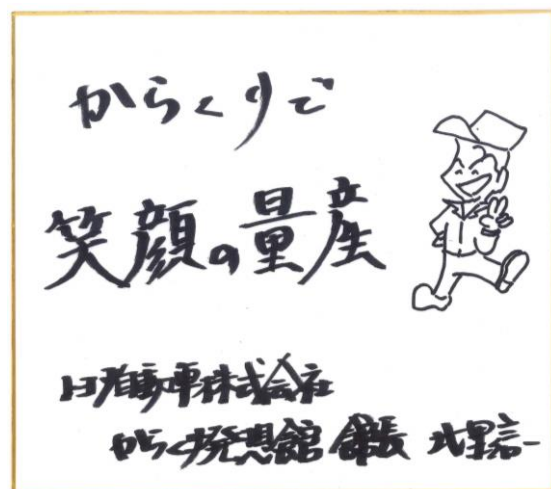 からくりで
笑顔の量産
トヨタ自動車株式会社
からくり発想館 館長